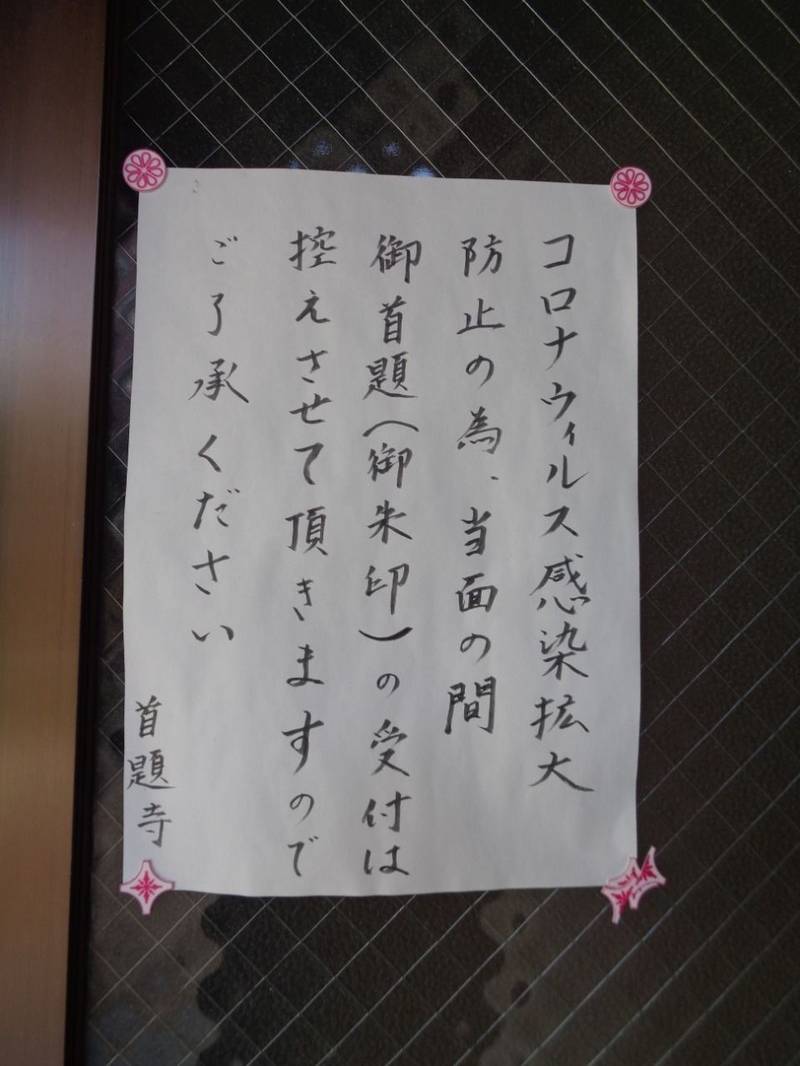 コロナウィルス感染拡大
防止の為、当面の間
御首題(御朱印)の受付は
控えさせて頂きますので
ご了承ください
首題寺